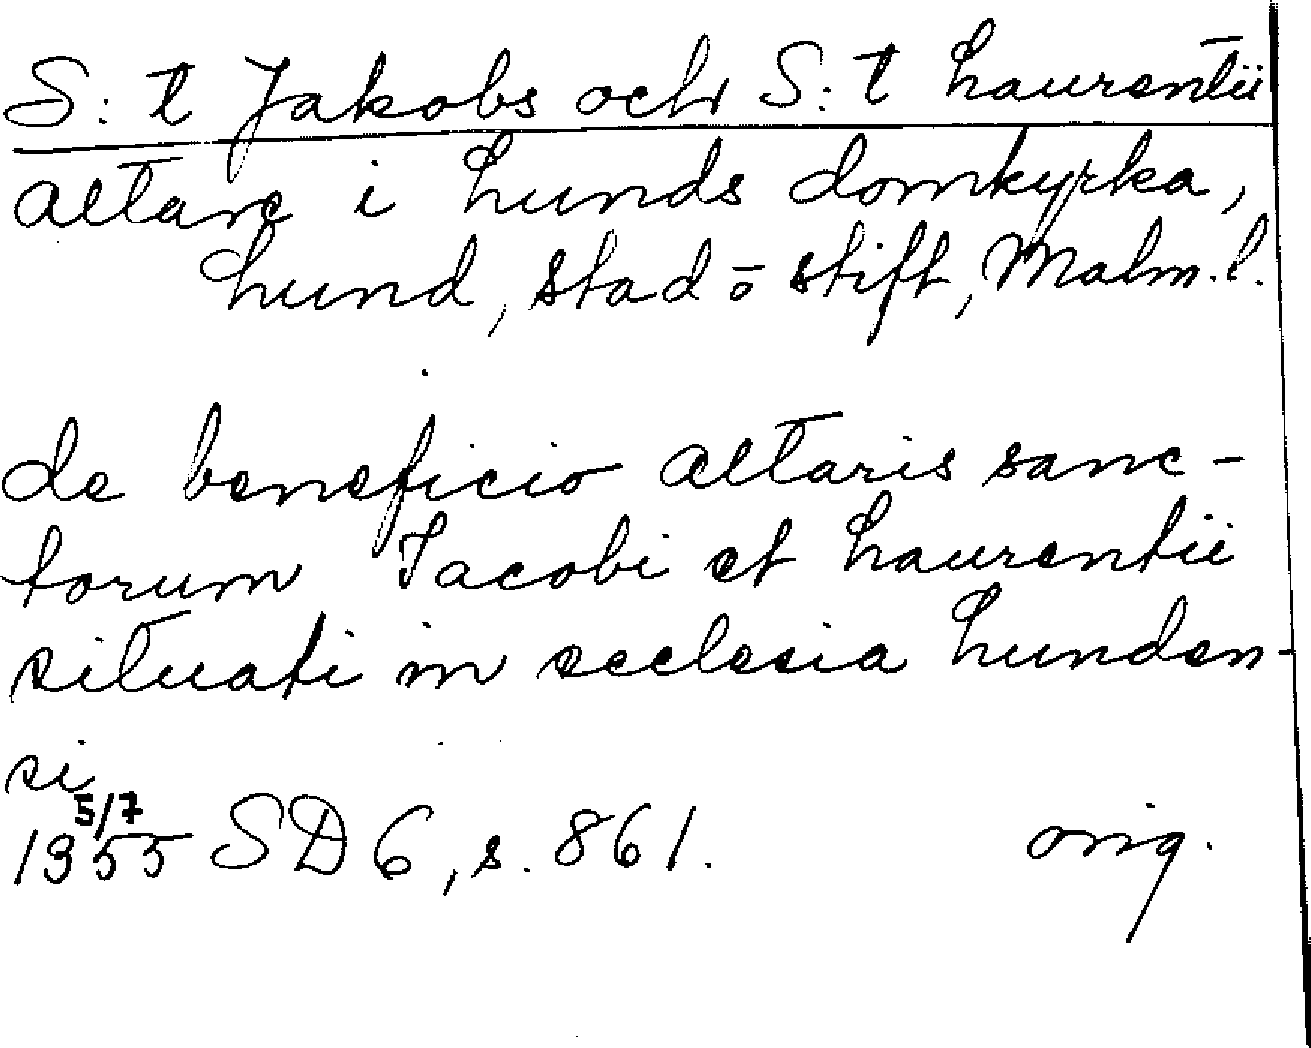 S:t Jakobs och S:t Laurentii
altare i Lunds domkyrka,
Lund, stad o stift, Malm.l.
de beneficio altaris sanc-
torum Jacobi et Laurentii
situati in ecclesia Lunden-
si
5/7
1355 SD 6, s. 861. orig.